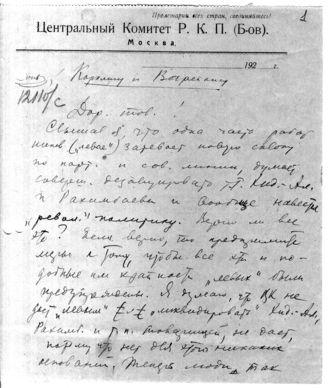 1
Пролетарии всех стран, соединяйтесь!
Центральный Комитет Р. К. П. (Б-ов).
Москва.
192 г.
Карклину и Вогревскому
12110/с
Дор. тов. !
Слышал я, что одна часть работ
ников („левое“) затевает новую склоку
по парт. и сов. линии, думает
соверш. дезавуировать т.т. Хид-Ал.
и Рахимбаева и вообще навести
„револ.“ политику. Верно ли все
это? Если верно, то предпримите
меры к тому, чтобы все эти и по-
добные им крайности „левых“ были
предупреждены. Я думаю, что ЦК не
даст „левым“ „ликвидировать“ Хид-Ал,
Рахимб. и др. товарищей, не даст,
потому что нет для этого никаких
оснований. Теперь люди так